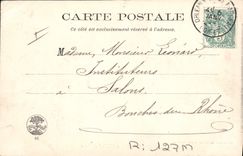 CARTE POSTALE
Ce côté est exclusivement réservé à l'adresse.
Madame, Monsieur Léonard,
Instituteurs
à
Salons
Bouches du Rhône
R: 127M